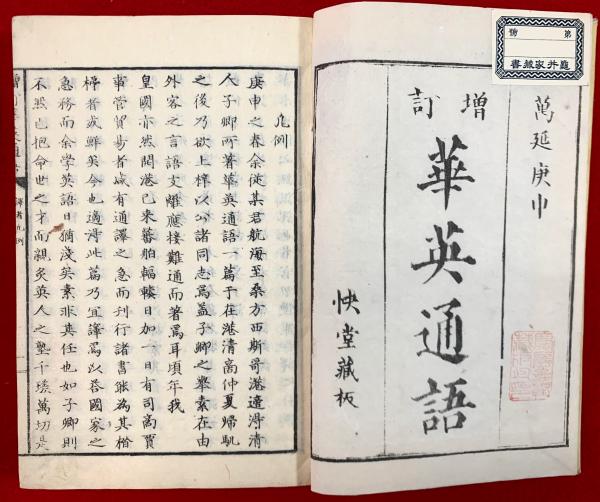 萬延庚申
增訂
華英通語
快堂藏板
第
號
龜井家藏書
凡例
庚申之春余從某君航海至桑方西斯哥港適得清
人子卿所著華英通語一篇于在港清商仲夏歸帆
之後乃欲上梓以公諸同志焉蓋子卿之舉素在由
外客之言語文難應接難通而著焉耳頃年我
皇國亦然開港已來蕃舶輻輳日加一日有司商賈
事管貿易者咸有通譯之急而刊行諸書能為其楷
梯者或鮮矣今也適得此篇乃宜譯焉以吞國家之
急務而余學英語日猶淺矣素非其任也如子卿則
不然已抱命世之才而親炙英人之塾千瑳萬切是